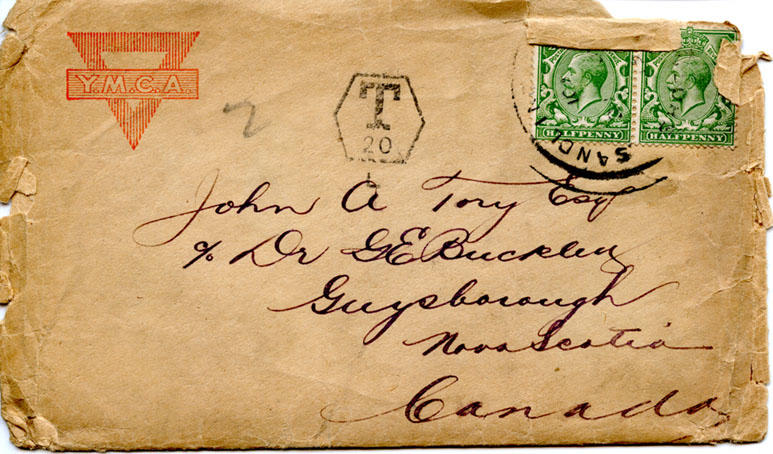 Y.M.C.A.
T
20
HALFPENNY HALFPENNY
John A Tory Esq
c/o Dr G E Buckley
Guysborough
Nova Scotia
Canada